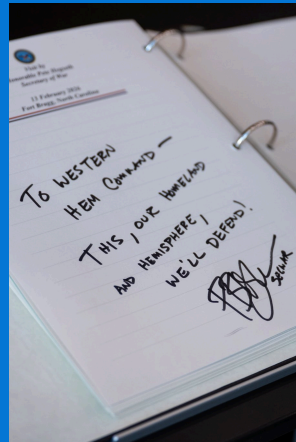 Visit by
Honorable Pete Hegseth
Secretary of War
13 February 2026
Fort Bragg, North Carolina
TO WESTERN
HEM COMMAND—
THIS, OUR HOMELAND
AND HEMISPHERE,
WE'LL DEFEND!
SECWAR